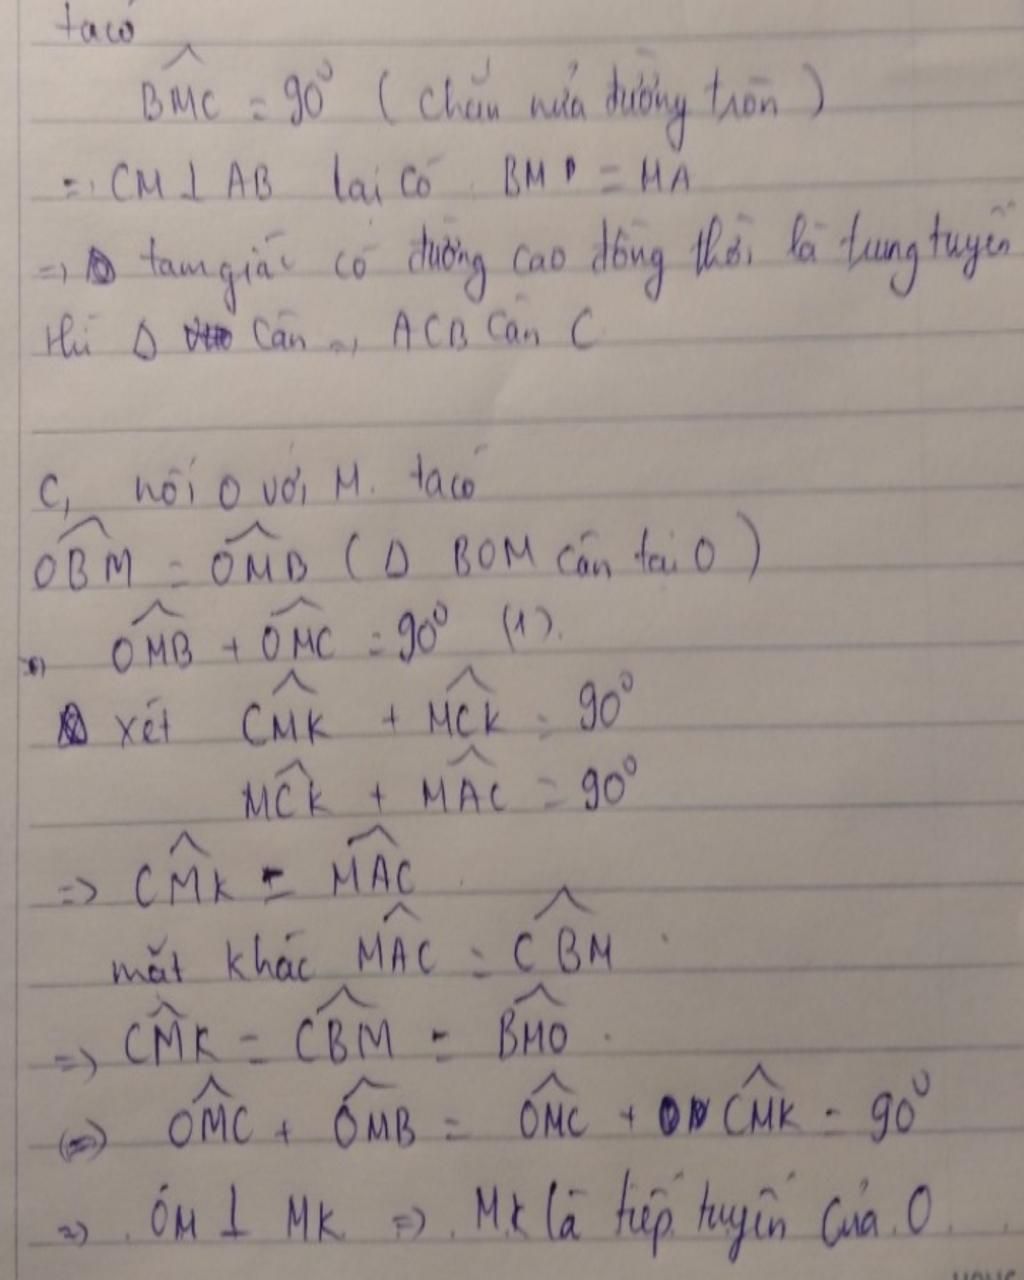 ta có
BMC = 90⁰ ( chắn nửa đường tròn )
=> CM ⊥ AB lại có BM = MA
=> tam giác có đường cao đồng thời là trung tuyến
thì Δ cân => ACB cân C
C, nối O với M. ta có
OBM = OMB ( Δ BOM cân tại O )
=> OMB + OMC = 90⁰ (1).
xét CMK + MCK = 90⁰
MCK + MAC = 90⁰
=> CMK = MAC
mặt khác MAC = CBM
=> CMK = CBM = BMO.
(=>) OMC + OMB = OMC + CMK = 90⁰
=> OM ⊥ MK => MK là tiếp tuyến của O